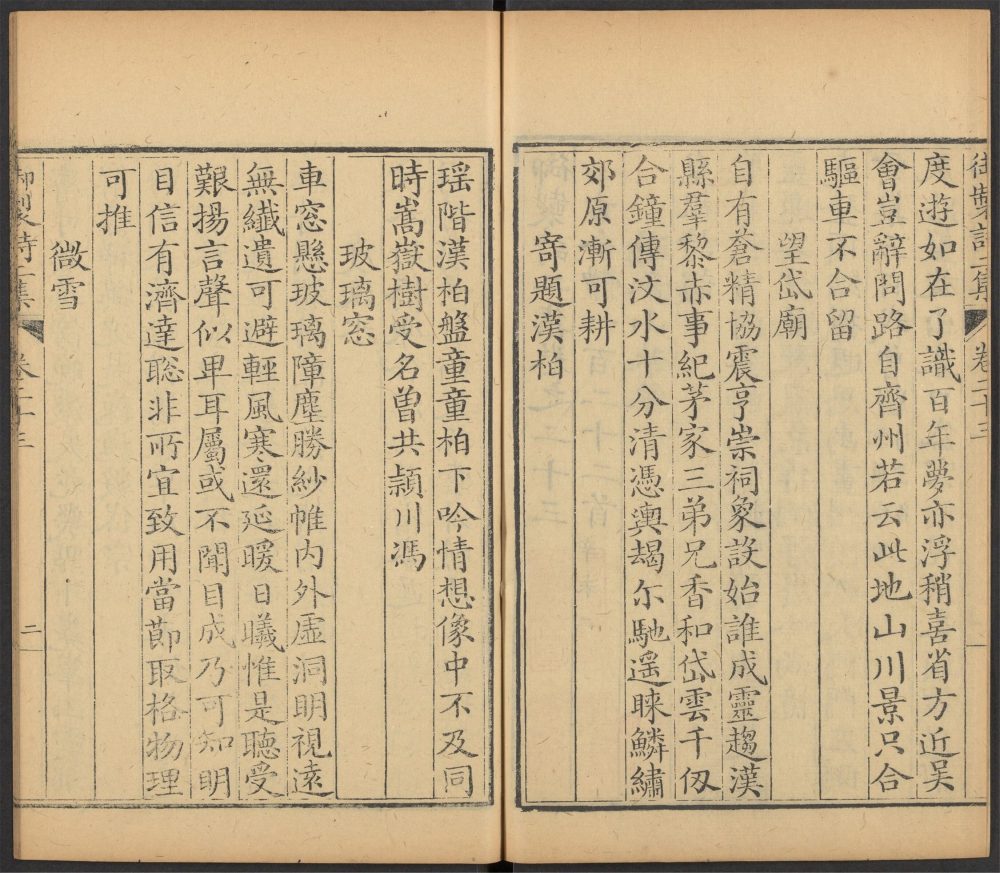 御製詩二集 卷二十三
度遊如在了識百年夢亦浮稍喜省方近吴
會豈辭問路自齊州若云此地山川景只合
驅車不合留
望岱廟
自有蒼精協震亨崇祠象設始誰成靈趨漢
縣羣黎赤事紀茅家三弟兄香和岱雲千仞
合鐘傳汶水十分清憑輿朅尒馳遥睞鱗繡
郊原漸可耕
寄題漢柏
瑶階漢柏盤童童柏下吟情想像中不及同
時嵩嶽樹受名曽共潁川馮
玻璃窓
車窓懸玻璃障塵勝紗帷内外虚洞明視遠
無纎遺可避輕風寒還延暖日曦惟是聽受
艱揚言聲似卑耳屬或不聞目成乃可知明
目信有濟達聡非所宜致用當節取格物理
可推
微雪
御製詩二集 卷二十三 二